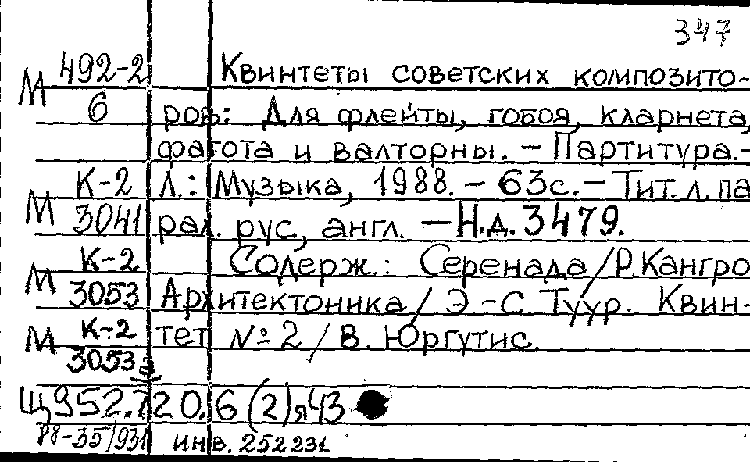 347
М 492-2 Квинтеты советских композито-
6 ров: Для флейты, гобоя, кларнета,
фагота и валторны. - Партитура.-
К-2 Л.: Музыка, 1988. - 63с. - Тит.л.па
М 3041 рал. рус, англ. - Н.д. 3479.
К-2 Содерж.: Серенада / Р. Кангро
М 3053 Архитектоника / Э.-С. Туур. Квин-
М К-2 тет №2 / В. Юргутис.
3053а
Щ952.720.6(2)я43
88-35/931 инв. 252231